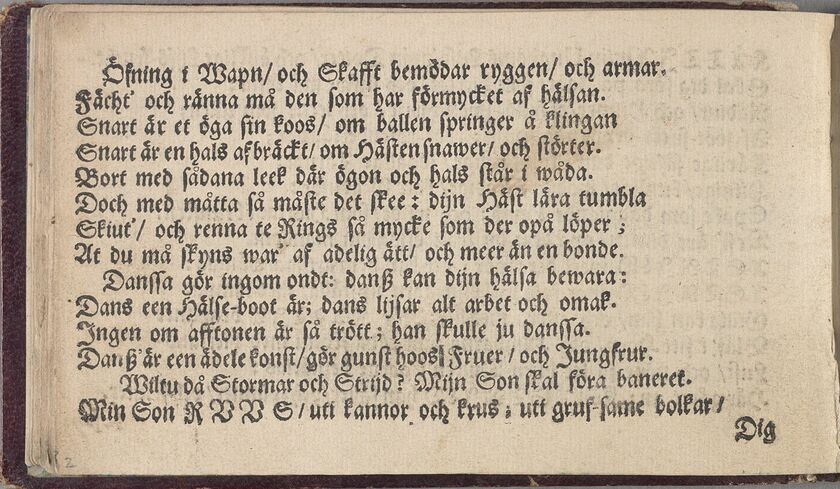 Öfning i Wapn/ och Skafft bemödar ryggen/ och armar.
Fächt' och ränna må den som har förmycket af hälsan.
Snart är et öga sin koos/ om ballen springer å klingan
Snart är en hals afbräckt/ om Hästen snawer/ och störter.
Bort med sådana leek där ögon och hals står i wåda.
Doch med måtta så måste det skee: dijn Häst lära tumbla
Skiut'/ och renna te Rings så mycke som der opå löper;
At du må skyns war' af adelig ätt/ och meer än en bonde.
Danssa gör ingom ondt: danß kan dijn hälsa bewara:
Dans een Hälse-boot är; dans lijsar alt arbet och omak.
Ingen om afftonen är så trött; han skulle ju danssa.
Danß' är een ädele konst/ gör gunst hoos Fruer/ och Jungfrur.
Wiltu då Stormar och Strijd? Mijn Son skal föra baneret.
Min Son RVVS/ utt kannor och krus; utt gruf-same bolkar/
Dig
2